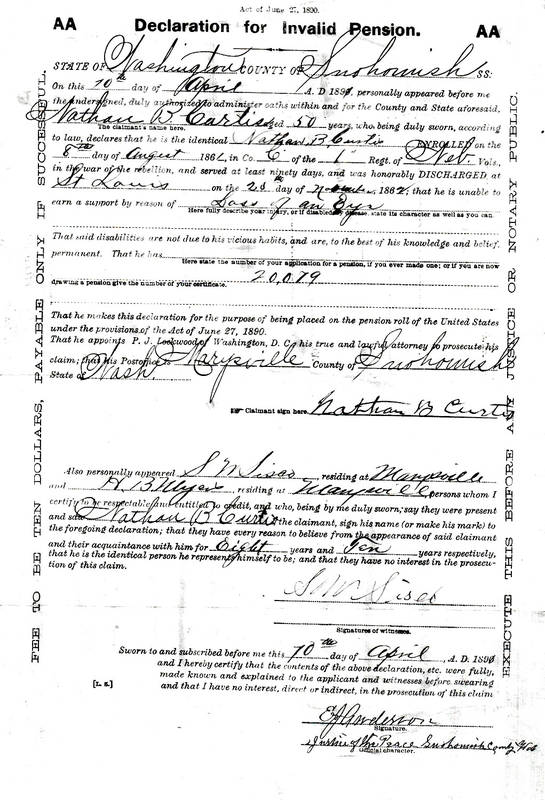 Act of June 27, 1890.
AA Declaration for Invalid Pension. AA
STATE OF Washington COUNTY OF Snohomish SS:
On this 10th day of April A. D. 189, personally appeared before me
the undersigned, duly authorized to administer oaths within and for the County and State aforesaid,
Nathan B. Curtis aged 50 years, who, being duly sworn, according
The claimant's name here.
to law, declares that he is the identical Nathan B Curtis ENROLLED on the
8th day of August 1861, in Co. C of the 1st Regt. of Neb. Vols.,
in the war of the rebellion, and served at least ninety days, and was honorably DISCHARGED, at
St Louis on the 28th day of November, 1862; that he is unable to
earn a support by reason of Loss of an Eye
Here fully describe your injury, or if disabled by disease, state its character as well as you can.
That said disabilities are not due to his vicious habits, and are, to the best of his knowledge and belief,
permanent. That he has
Here state the number of your application for a pension, if you ever made one; or if you are now
20,079
drawing a pension give the number of your certificate.
That he makes this declaration for the purpose of being placed on the pension roll of the United States
under the provisions of the Act of June 27, 1890.
That he appoints P. J. Lockwood of Washington, D. C., his true and lawful attorney to prosecute his
claim; that his Postoffice is Marysville County of Snohomish
State of Wash.
Claimant sign here. Nathan B Curtis
Also personally appeared S W Sisco, residing at Marysville
and H. B Myers, residing at Marysville persons whom I
certify to be respectable and entitled to credit, and who, being by me duly sworn, say they were present
and saw Nathan B Curtis the claimant, sign his name (or make his mark) to
the foregoing declaration; that they have every reason to believe from the appearance of said claimant
and their acquaintance with him for Eight years and Ten years respectively,
that he is the identical person he represents himself to be; and that they have no interest in the prosecu-
tion of this claim.
S W Sisco
Signatures of witnesses.
Sworn to and subscribed before me this 10th day of April, A. D. 189
and I hereby certify that the contents of the above declaration, etc. were fully,
made known and explained to the applicant and witnesses before swearing
[L. S.] and that I have no interest, direct or indirect, in the prosecution of this claim
E J Anderson
Signature.
Justice of the Peace Snohomish County Wash
Official character.
FEE TO BE TEN DOLLARS, PAYABLE ONLY IF SUCCESSFUL.
EXECUTE THIS BEFORE ANY JUSTICE OR NOTARY PUBLIC.